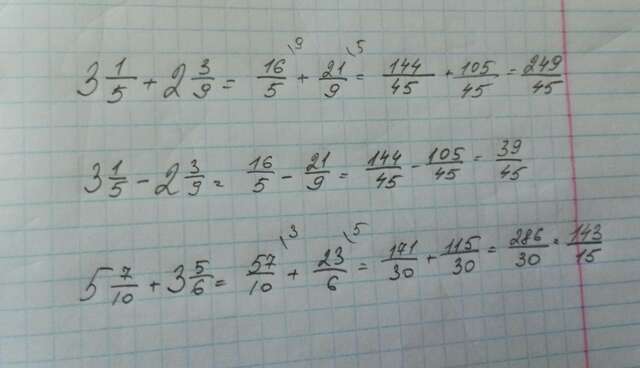 3 1/5 + 2 3/9 = 16/5 \9 + 21/9 \5 = 144/45 + 105/45 = 249/45
3 1/5 - 2 3/9 = 16/5 - 21/9 = 144/45 - 105/45 = 39/45
5 7/10 + 3 5/6 = 57/10 \3 + 23/6 \5 = 171/30 + 115/30 = 286/30 = 143/15